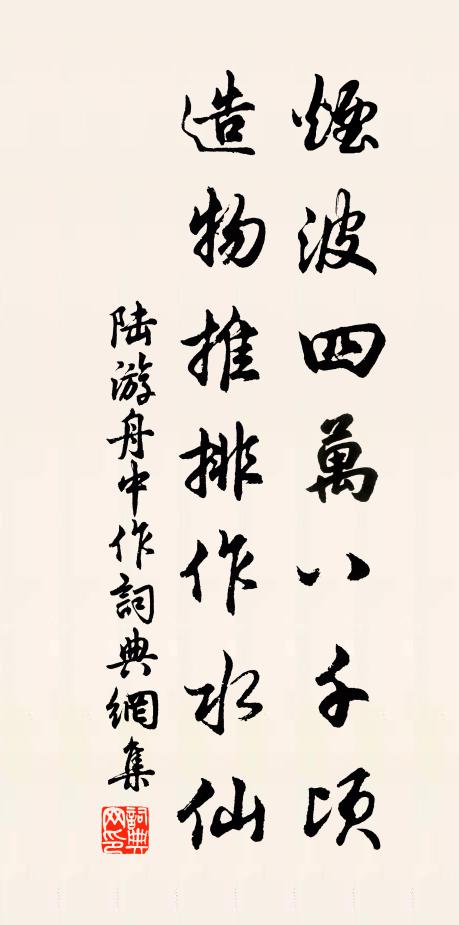 煙波四萬八千頃
造物推排作水仙
陸游舟中作詞典網集
詞典網印